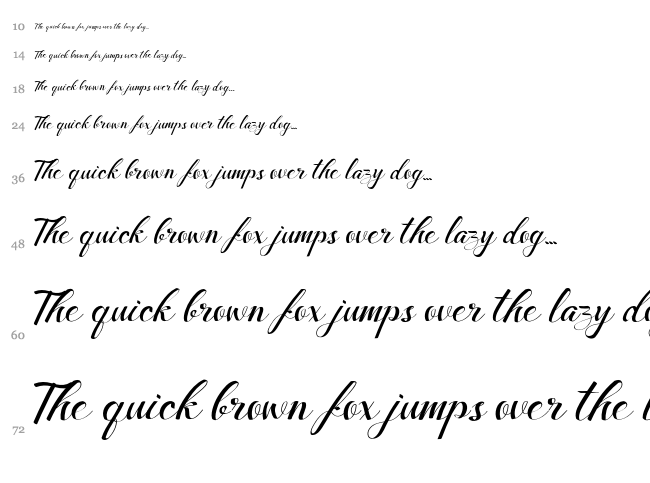 10 The quick brown fox jumps over the lazy dog...
14 The quick brown fox jumps over the lazy dog...
18 The quick brown fox jumps over the lazy dog...
24 The quick brown fox jumps over the lazy dog...
36 The quick brown fox jumps over the lazy dog...
48 The quick brown fox jumps over the lazy dog...
60 The quick brown fox jumps over the lazy do
72 The quick brown fox jumps over the l